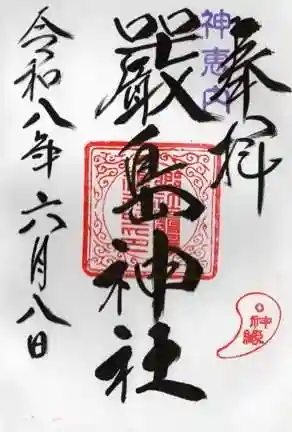 奉拝
神恵内
厳島神社
令和八年六月八日
神縁